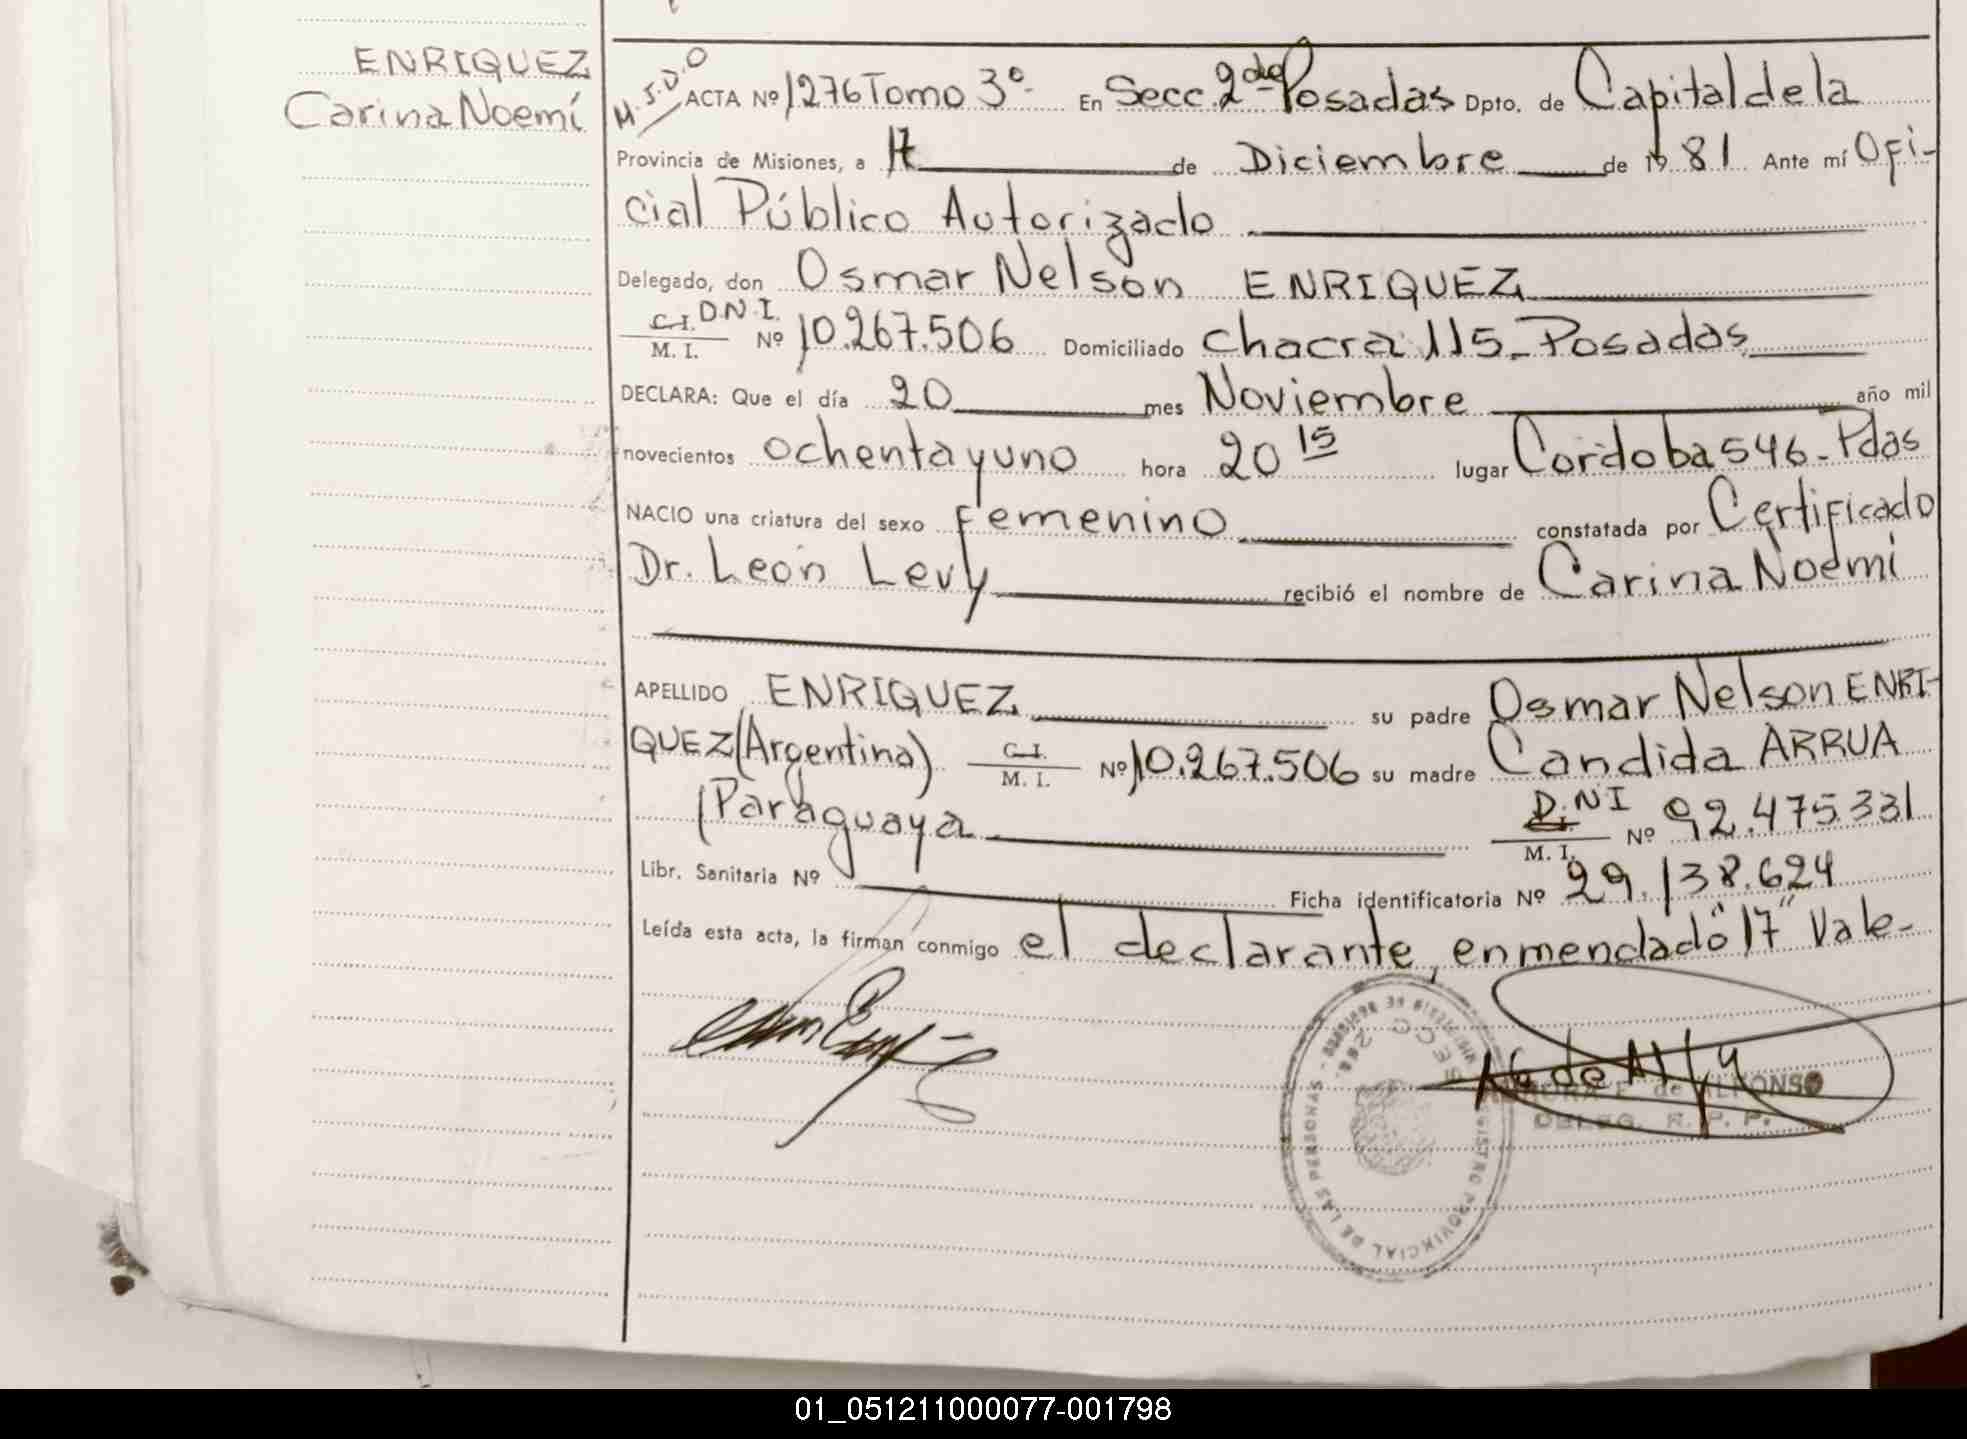 ENRIQUEZ
Carina Noemí
M.S.D.O
ACTA Nº 1276 Tomo 3º En Secc. 2da Posadas Dpto. de Capital de la
Provincia de Misiones, a 17 de Diciembre de 19 81 Ante mí Ofi-
cial Público Autorizado
Delegado, don Osmar Nelson ENRIQUEZ
C.I. D.N.I.
M. I. Nº 10.267.506 Domiciliado Chacra 115-Posadas
DECLARA: Que el día 20 mes Noviembre año mil
novecientos ochenta y uno hora 20 15 lugar Cordoba 546-Pdas
NACIO una criatura del sexo Femenino constatada por Certificado
Dr. León Levy recibió el nombre de Carina Noemí
APELLIDO ENRIQUEZ su padre Osmar Nelson ENRI-
QUEZ (Argentina) C.I. M. I. Nº 10.267.506 su madre Candida ARRUA
(Paraguaya D.NI M. I. Nº 92.475.331
Libr. Sanitaria Nº Ficha identificatoria Nº 29.138.624
Leída esta acta, la firman conmigo el declarante, enmendado "17" Vale-
REGISTRO PROVINCIAL DE LAS PERSONAS
de ALFONSO
DELEG. R. P. P.
01_051211000077-001798